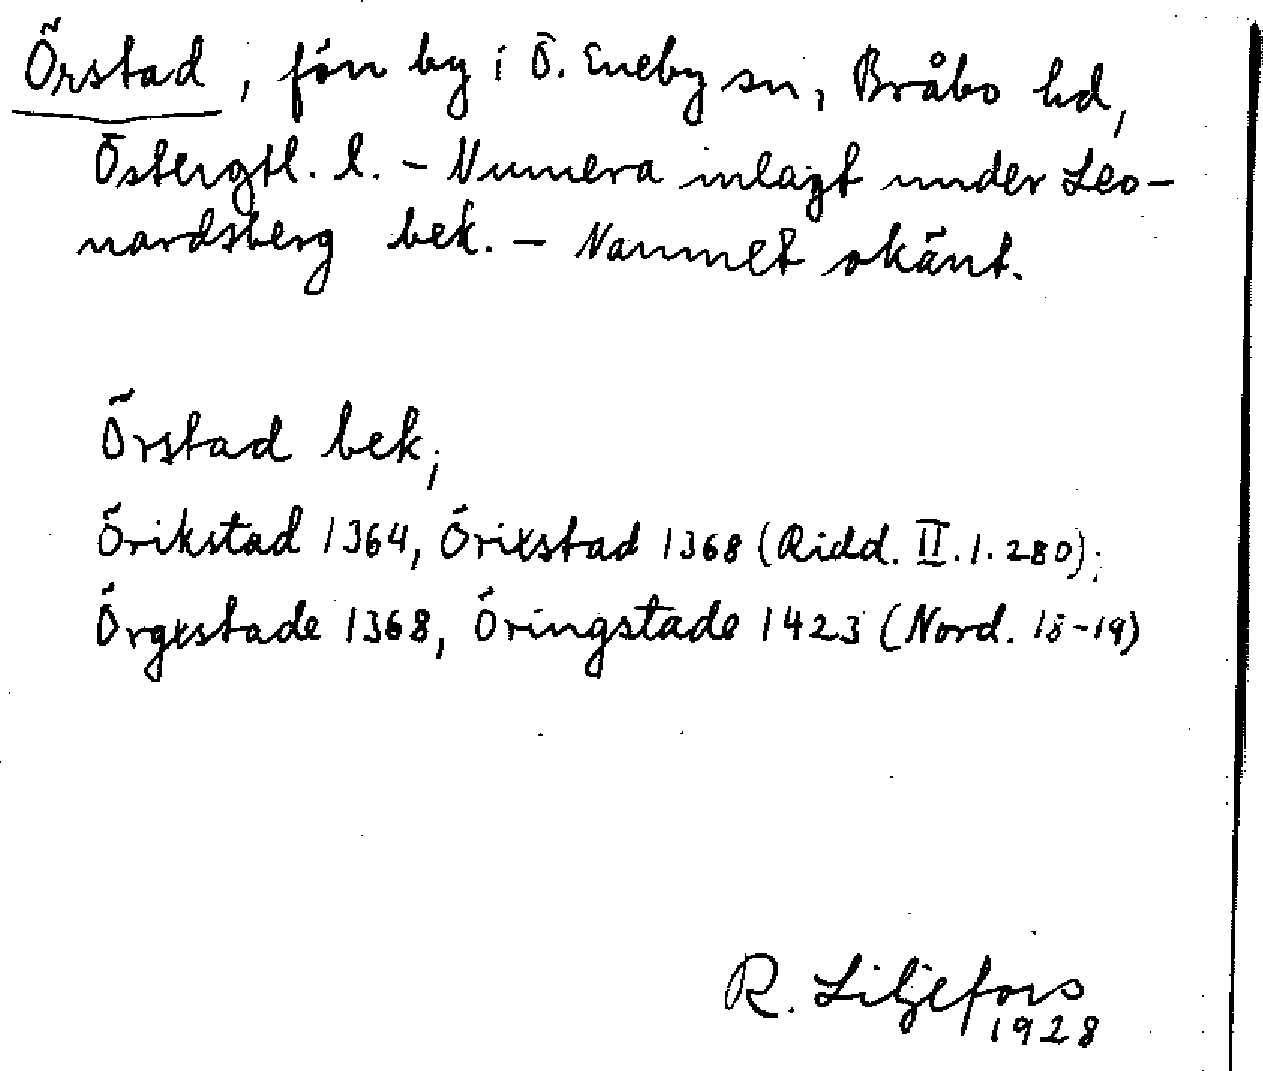 Örstad, förr by i Ö. Eneby sn, Bråbo hd,
Östergtl. l. - Numera inlagt under Leo-
nardsberg bek. - Namnet okänt.
Örstad bek;
Örikstad 1364, Örixstad 1368 (Ridd. II. 1. 280);
Örgxstade 1368, Öringstade 1423 (Nord. 18-19)
R. Liljefors
1928